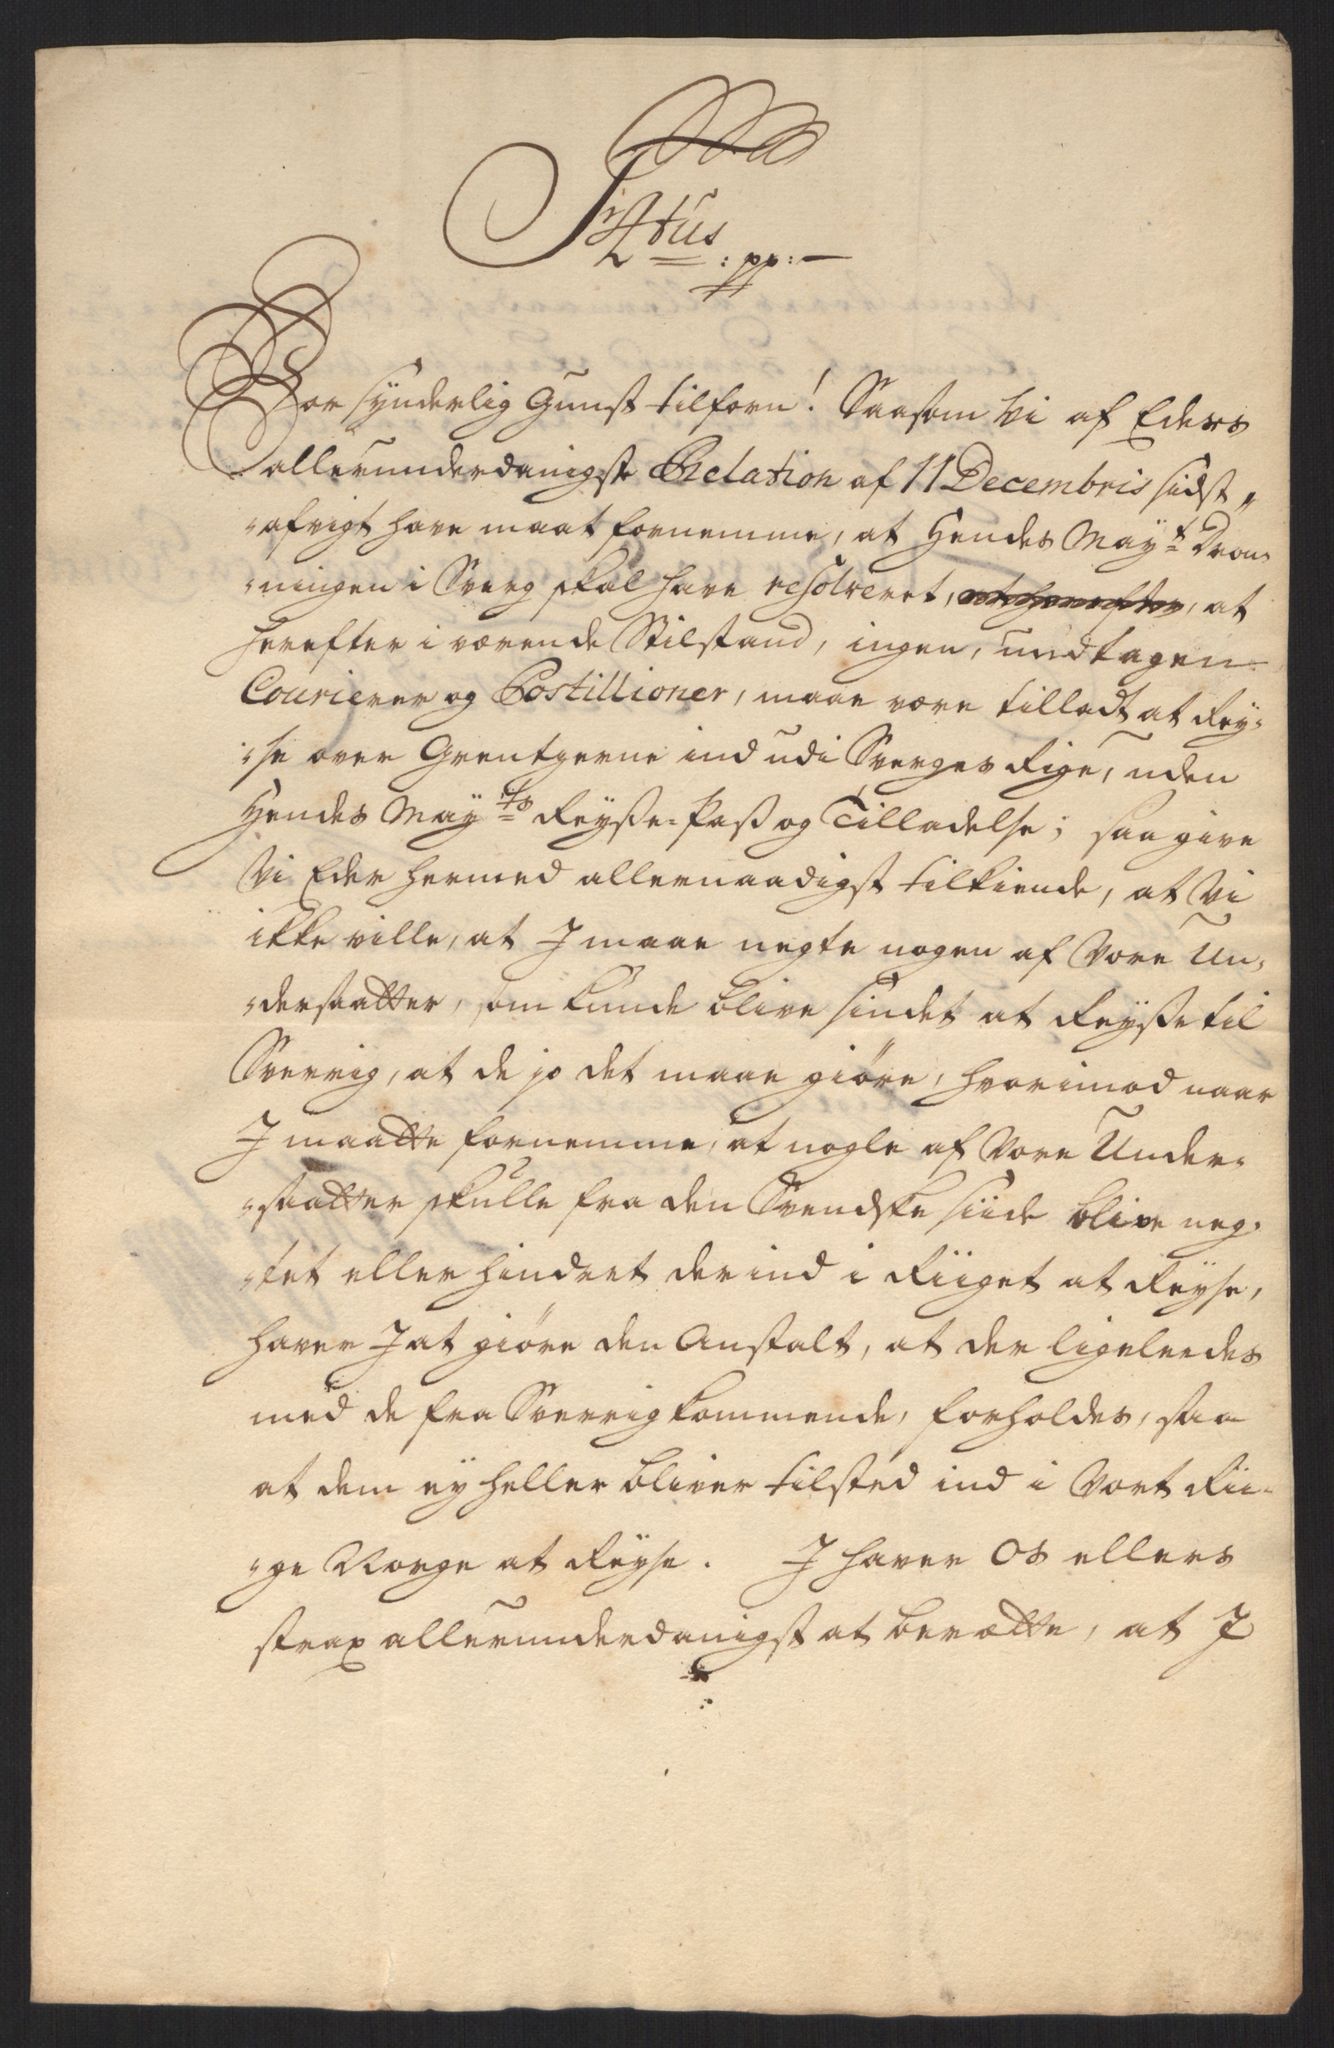 Fr 4tus
:pp:—
Vor synderlig Gunst tilforn! Saasom Vi af Eders
allerunderdanigste Relation af 11 Decembris sidst„
„afvigt have maat fornemme, at Hendes May.t Dron„
„ningen i Sverg skal have resolveret, at herefter, at
herefter i værende Stilstand, ingen, undtagen
Courierer og Postillioner, maae være tilladt at Rey„
„se over Grentzerne ind udi Sverges Rige, uden
Hendes May.ts Reysse-Pass og Tilladelse; saa give
Vi Eder hermed allernaadigst tilkiende, at Vi
ikke ville, at I maae negte nogen af Vore Un„
„dersaatter, som kunde blive sindet at Reysse til
Sverrig, at de jo det maae giøre, hvorimod naar
I maatte fornemme, at nogle af Vore Under„
„saatter skulle fra den Svendske siide blive neg„
„tet eller hindret der ind i Riiget at Reyse,
haver I at giøre den Anstalt, at der ligeleedes
med de fra Sverrig kommende, forholdes, saa
at dem ey heller bliver tilsted ind i Vort Rii„
„ge Norge at Reyse. I haver Os ellers
strax allerunderdanigst at berætte, at I